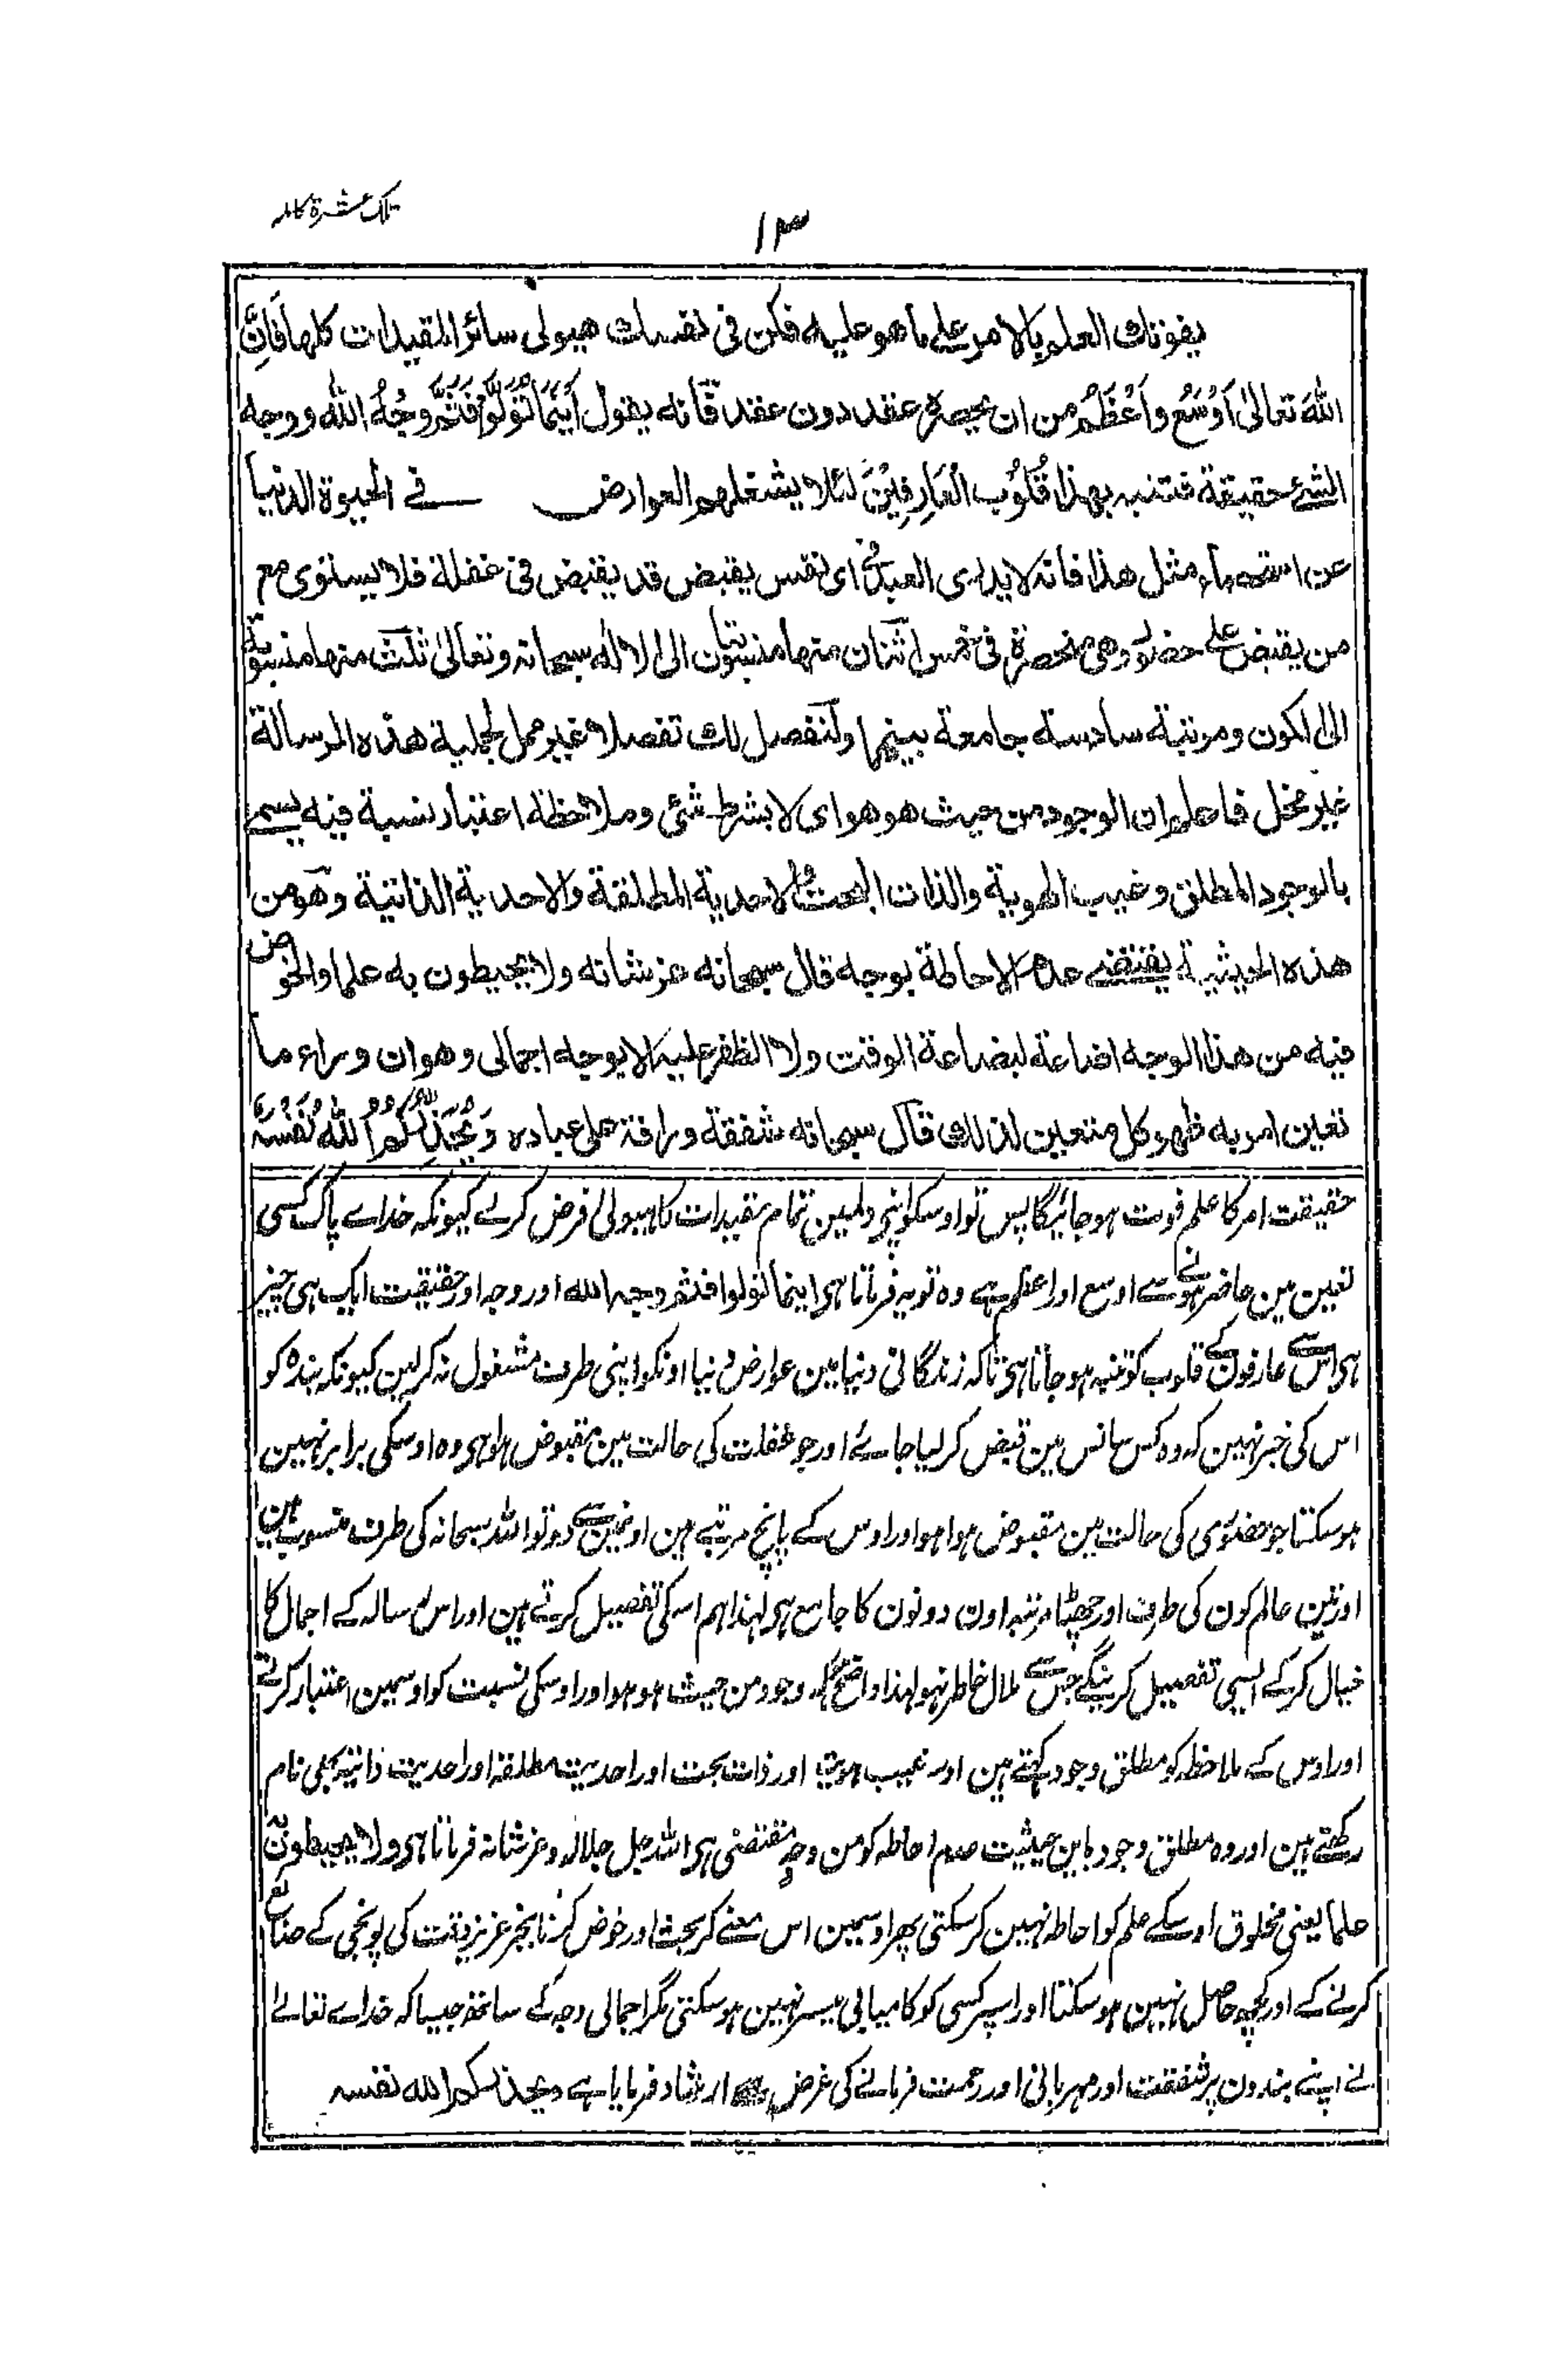 تلک عشرة کاملہ
١٣
يفوتك العلم بالامر على ما هو عليه فكن فى نفسك هيولى سائر المقيدات كلها فَاِنَّ
اللهَ تعالىٰ اَوْسَعُ واَعْظَمُ من ان يحصره عقد دون عقد فَانه يقول اَيْنَمَا تُوَلُّوْا فَثَمَّ وَجْهُ الله ووجه
الشئ حقيقة فتنبه بهذا قُلُوْب العَارِفِيْنَ لئلا يشتغلهم العوارض فى الحيوة الدنيا
عن مثل هذا فانه لا يدرى العبد فى اى نفس يقبض قد يقبض فى غفلة فلا يستوى مع
من يقبض على حضور وهى منحصرة فى خمس اثنتان منها منسبتان الى الاله سبحانه وتعالىٰ ثلث منها منسوبة
الى الكون ومرتبة سادسة جامعة بينهما ولنفصل لك تفصلا غير ممل لجملية هذه الرسالة
غير مخل فاعلم ان الوجود من حيث هو هو اى لا بشرط شئى وملاحظة اعتبار نسبة فيه يسمى
بالوجود المطلق وغيب الهوية والذات البحت والاحدية المطلقة والاحدية الذاتية وهو من
هذه الحيثية يقتضى عدم الاحاطة بوجه قال سبحانه عز شانه ولا يحيطون به علما والخوض
فيه من هذا الوجه اضاعة لبضاعة الوقت ولا الظفر عليه الا بوجه اجمالى وهو ان وراء ما
تعين امر به ظهر كل متعين لذلك قال سبحانه شفقة ورافة على عباده وَيُحَذِّرُكُمُ اللهُ نَفْسَهٗ
حقیقت امر کا علم فوت ہو جائیگا پس تو اوسکو اپنی دلمین تمام مقیدات کا ہیولیٰ فرض کرلے کیونکہ خداے پاک کسی
تعین مین حاضر ہونے سے اوسع اور اعظم ہے وہ تو یہ فرماتا ہی اینما تولوا فثم وجہ الله اور وجہ اور حقیقت ایک ہی چیز
ہی اس سے عارفون کے قلوب کو تنبہ ہو جاتا ہی تاکہ زندگانی دنیا مین عوارض دنیا اونکو اپنی طرف مشغول نہ کرلین کیونکہ بندہ کو
اس کی خبر نہین کہ وہ کس سانس مین قبض کر لیا جاے اور جو غفلت کی حالت مین مقبوض ہوا ہی وہ اوسکی برابر نہین
ہو سکتا جو حضوری کی حالت مین مقبوض ہوا ہو اور اوس کے پانچ مرتبے ہین اونمین سے دو تو اللہ سبحانہ کی طرف منسوب ہین
اور تین عالم کون کی طرف اور چھٹا مرتبہ اون دونون کا جامع ہی لہذا ہم اسکی تفصیل کرتے ہین اور اس رسالہ کے اجمال کا
خیال کرکے ایسی تفصیل کرینگے جس سے ملال خاطر نہو لہذا واضح ہو کہ وجود من حیث ہو ہو اور اوسکی نسبت کو اوسمین اعتبار کرتے
اور اوس کے ملاحظہ کو مطلق وجود کہتے ہین اور غیب ہویت اور ذات بحت اور احدیت مطلقہ اور احدیت ذاتیہ بھی نام
رکھتے ہین اور وہ مطلق وجود باین حیثیت عدم احاطہ کو من وجہٍ مقتضی ہی اللہ جل جلالہ وعز شانہ فرماتا ہی ولا یحیطون بہ
علما یعنی مخلوق اوسکے علم کو احاطہ نہین کر سکتی پھر اوسمین اس معنے کر بحث اور خوض کرنا بجز عزیز وقت کی پونجی کے ضائع
کرنے کے اور کچھ حاصل نہین ہو سکتا اور اسپر کسی کو کامیابی میسر نہین ہو سکتی مگر اجمالی وجہ کے ساتھ جیسا کہ خداے تعالےٰ
نے اپنے بندون پر شفقت اور مہربانی اور رحمت فرمانے کی غرض سے ارشاد فرمایا ہے ویحذرکم الله نفسہ